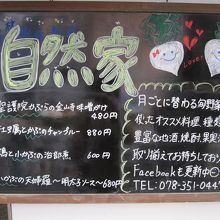 Love
自然家
聖護院かぶらの金山寺味噌かけ
480円
江里蕪と小かぶのチャンプルー 880円
鶏と小かぶの治部煮 600円
小かぶの天婦羅〜明太子ソース〜680円
月ごとに替わる旬野菜
使ったオススメ料理、種類
豊富な地酒、焼酎、果実酒
取り揃えてお待ちしており
Facebookも更新中
TEL:078-351-044